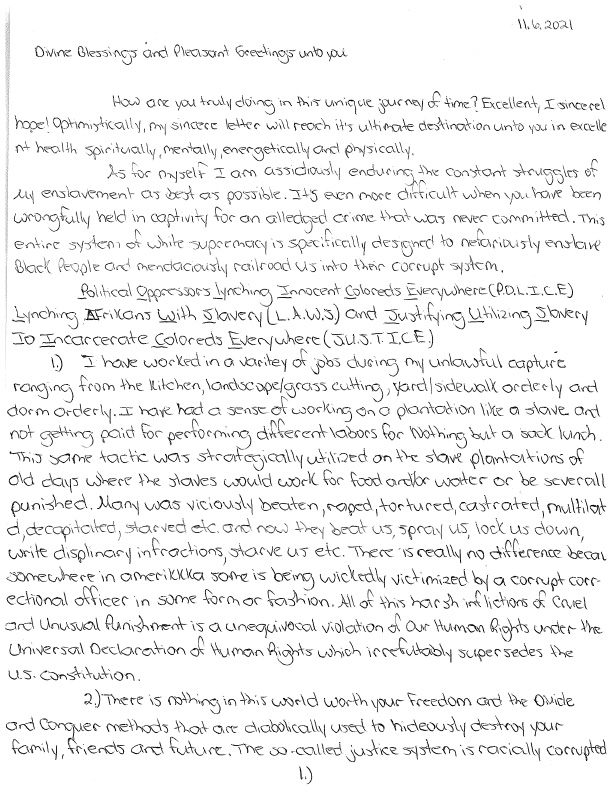 11.6.2021
Divine Blessings and Pleasant Greetings unto you
How are you truly doing in this unique journey of time? Excellent, I sincerel
hope! Optimistically, my sincere letter will reach it's ultimate destination unto you in excelle
nt health spiritually, mentally, energetically and physically.
As for myself I am assiduously enduring the constant struggles of
my enslavement as best as possible. It's even more difficult when you have been
wrongfully held in captivity for an alledged crime that was never committed. This
entire system of white supremacy is specifically designed to nefariously enslave
Black People and mendaciously railroad us into their corrupt system.
Political Oppressors Lynching Innocent Coloreds Everywhere (P.O.L.I.C.E)
Lynching Afrikans With Slavery (L.A.W.S) and Justifying Utilizing Slavery
To Incarcerate Coloreds Everywhere (J.U.S.T.I.C.E.)
1.) I have worked in a varitey of jobs during my unlawful capture
ranging from the kitchen, landscape/grass cutting, yard/sidewalk orderly and
dorm orderly. I have had a sense of working on a plantation like a slave and
not getting paid for performing different labors for Nothing but a sack lunch.
This same tactic was strategically utilized on the slave plantations of
old days where the slaves would work for food and/or water or be severall
punished. Many was viciously beaten, raped, tortured, castrated, multilat
d, decapitated, starved etc. and now they beat us, spray us, lock us down,
write displinary infractions, starve us etc. There is really no difference becau
somewhere in amerikkka some is being wickedly victimized by a corrupt corr-
ectional officer in some form or fashion. All of this harsh inflictions of Cruel
and Unusual Punishment is a unequivocal violation of Our Human Rights under the
Universal Declaration of Human Rights which irrefutably supersedes the
U.S. constitution.
2.) There is nothing in this world worth your Freedom and the Divide
and Conquer methods that are diabolically used to hideously destroy your
family, friends and future. The so-called justice system is racially corrupted
1.)